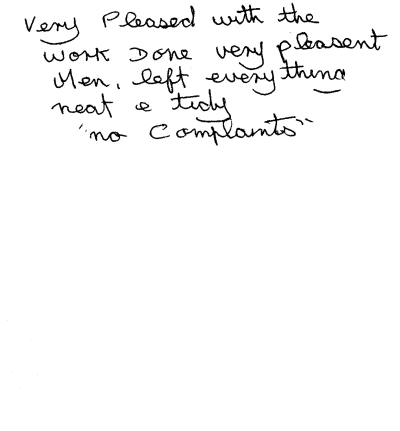 Very Pleased with the
work Done very pleasent
Men, left everything
neat e tidy
"no Complaints"